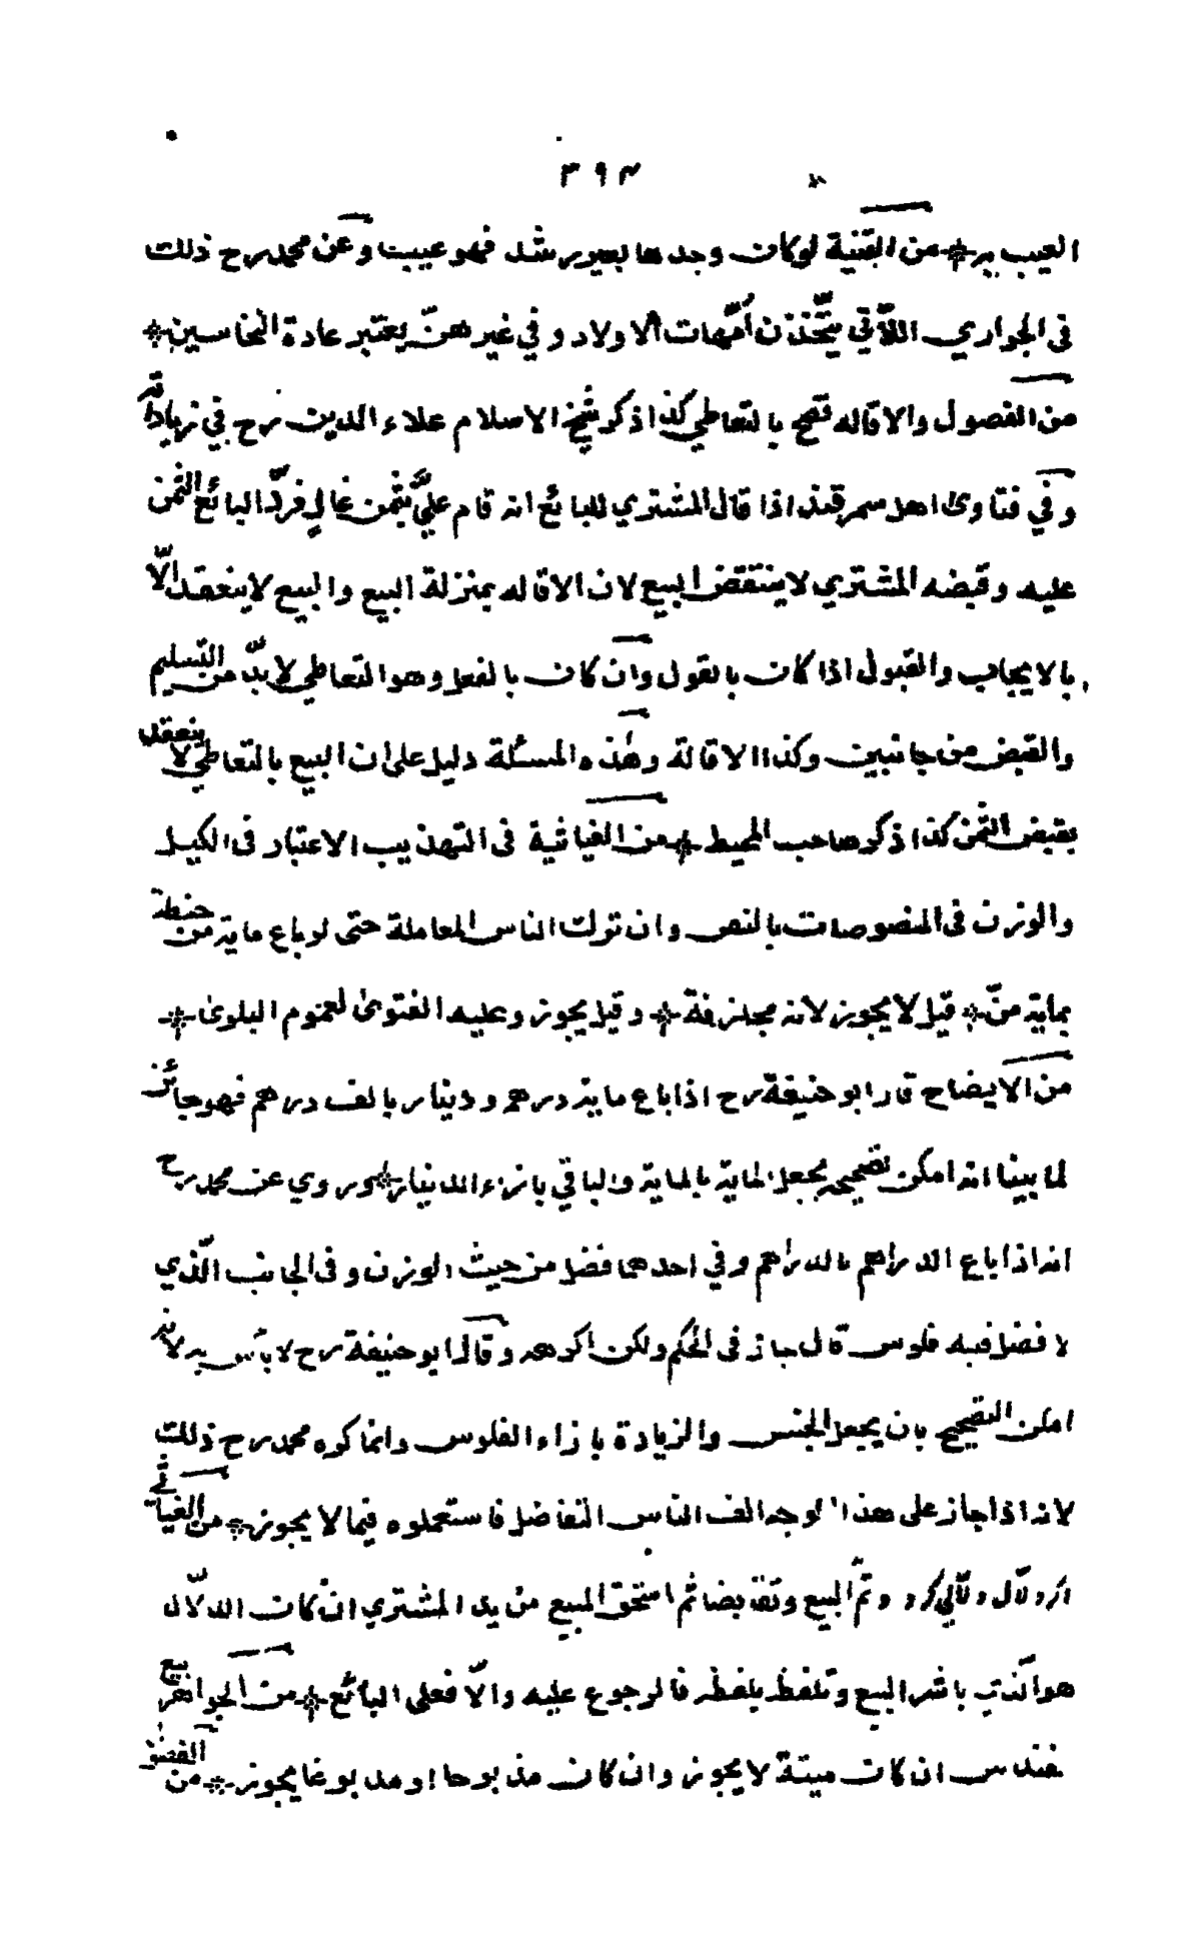 ٣٩٣
العيب به * من القنية لو كانت وجدها بعور شد فهو عيب وعن محمد رح ذلك
فى الجواري اللّاتي يتّخذن أمّهات الاولاد و في غير هنّ يعتبر عادة النخاسين *
من الفصول والاقاله تصح بالتعاطي كذا ذكر شيخ الاسلام علاء الدين رح في زياداته
وفي فتاوى اهل سمرقند اذا قال المشتري للبائع انه قام عليّ بثمن غالٍ فردّ البائع الثمن
عليه وقبضه المشتري لا ينتقض البيع لان الاقاله بمنزلة البيع والبيع لا ينعقد الّا
بالايجاب والقبول اذا كان بالقول وان كان بالفعل وهو التعاطي لا بدّ من التسليم
والقبض من جانبين وكذا الاقالة وهذه المسئلة دليل على ان البيع بالتعاطي لا ينعقد
بقبض الثمن كذا ذكر صاحب المحيط * من الغياثية فى التهذيب الاعتبار فى الكيل
والوزن فى المنصوصات بالنص وان ترك الناس المعاملة حتى لو باع ماية من حنطة
بماية منّ * قيل لا يجوز لانه مجازفة * وقيل يجوز وعليه الفتوى لعموم البلوى *
من الايضاح قال ابو حنيفة رح اذا باع ماية درهم ودينار بالف درهم فهو جائز
لما بينا انه امكن تصحيحه بجعل الماية بالماية والباقي بازاء الدينار * وروي عن محمد رح
انه اذا باع الدراهم بالدراهم وفي احدهما فضل من حيث الوزن و فى الجانب الّذي
لا فضل فيه فلوس قال جاز فى الحكم ولكن اكرهه وقال ابو حنيفة رح لا بأس به لانه
امكن التصحيح بان يجعل الجنس والزيادة بازاء الفلوس وانما كره محمد رح ذلك
لانه اذا جاز على هذا الوجه الف الناس التفاضل فاستعملوه فيما لا يجوز * من الغياثي
ازدلّال دلّالي كرد و تمّ البيع وتقابضا ثم استحق المبيع من يد المشتري ان كان الدلّال
هو الّذي باشر البيع وتلفظ بلفظه فالرجوع عليه والّا فعلى البائع * من الجواهر بيع
ان كان ميتة لا يجوز وان كان مذبوحا او مدبوغا يجوز * من الفصول